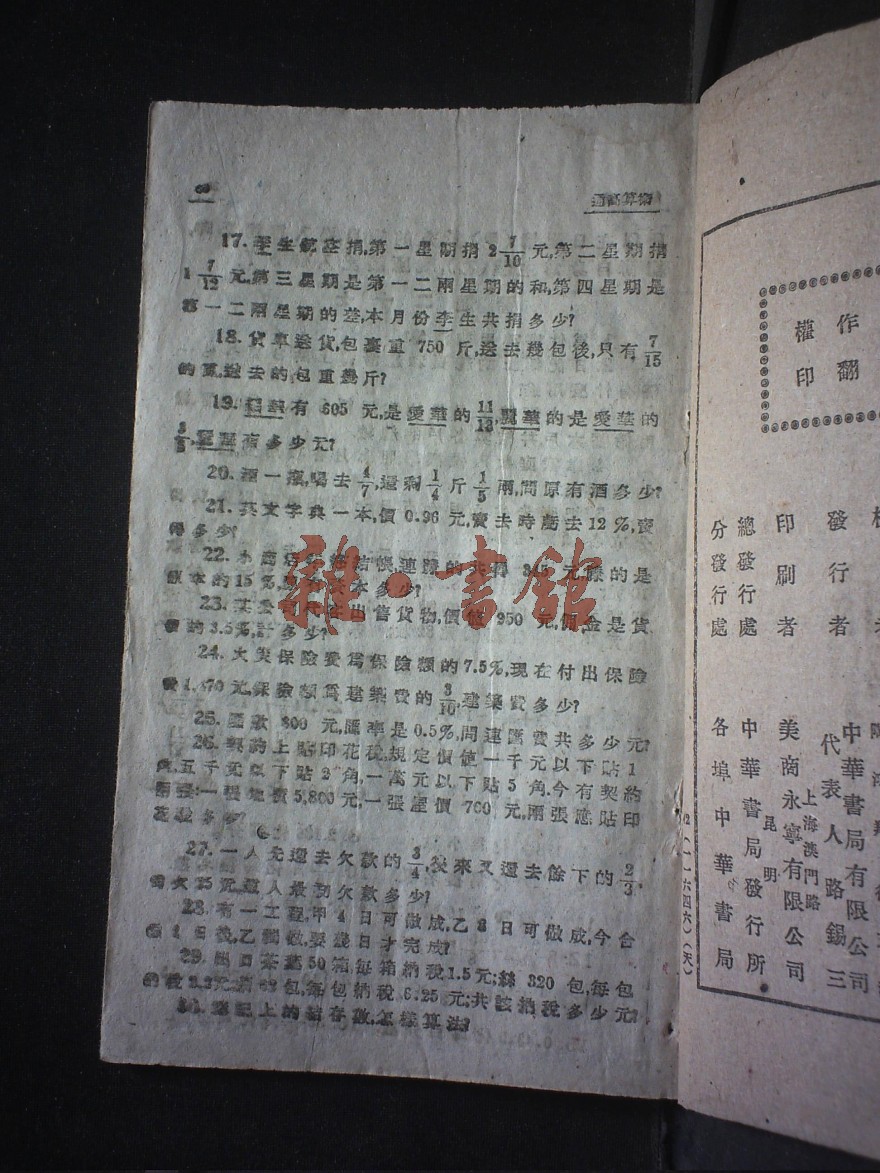 通高算術
17. 李生 捐,第一星期捐 2 7/10 元,第二星期捐
1 7/12 元,第三星期是第一二兩星期的和,第四星期是
第一二兩星期的差,本月份李生共捐多少?
18. 貨車送貨,包裹重 750 斤,送去幾包後,只有 7/15
的重,送去的包重幾斤?
19. 華有 605 元,是愛華的 11/13,麗華的是愛華的
有多少元?
20. 酒一瓶,喝去 4/7,還剩 1/4 斤 1/5 兩,問原有酒多少?
21. 英文字典一本,價 0.96 元,賣去時虧去 12%,賣
得多少?
22. 小商店 結帳,連賺的共得 元,賺的是
血本的 15%, 本多少?
23. 某 出售貨物,價值 950 元,佣金是貨
價的 3.5%,計多少?
24. 火災保險費爲保險額的 7.5%,現在付出保險
費 1,470 元,保險額爲建築費的 3/10,建築費多少?
25. 匯款 800 元,匯率是 0.5%,問連匯費共多少元?
26. 契約上貼印花稅,規定價値一千元以下貼 1
角,五千元以下貼 2 角,一萬元以下貼 5 角.今有契約
兩張:一張地價 5,800 元,一張屋價 700 元,兩張應貼印
花稅多少?
27. 一人先還去欠款的 3/4,後來又還去餘下的 2/3,
尚欠 25 元,這人最初欠款多少?
28. 有一工程,甲 4 日可做成,乙 8 日可做成,今合
做 1 日後,乙獨做,要幾日才完成?
29. 出口茶葉 50 箱,每箱納稅 1.5 元;絲 320 包,每包
納稅 元; 包,每包納稅 6.25 元;共該納稅多少元?
30. 簿記上的結存數,怎樣算法?
作
權
翻
印
發行者
印刷者
總發行處
分發行處
中華書局有限公司
代表人路錫三
上海澳門路
美商永寧有限公司
昆明
中華書局發行所
各埠中華書局
(一一六四六)(天)
雜·書館